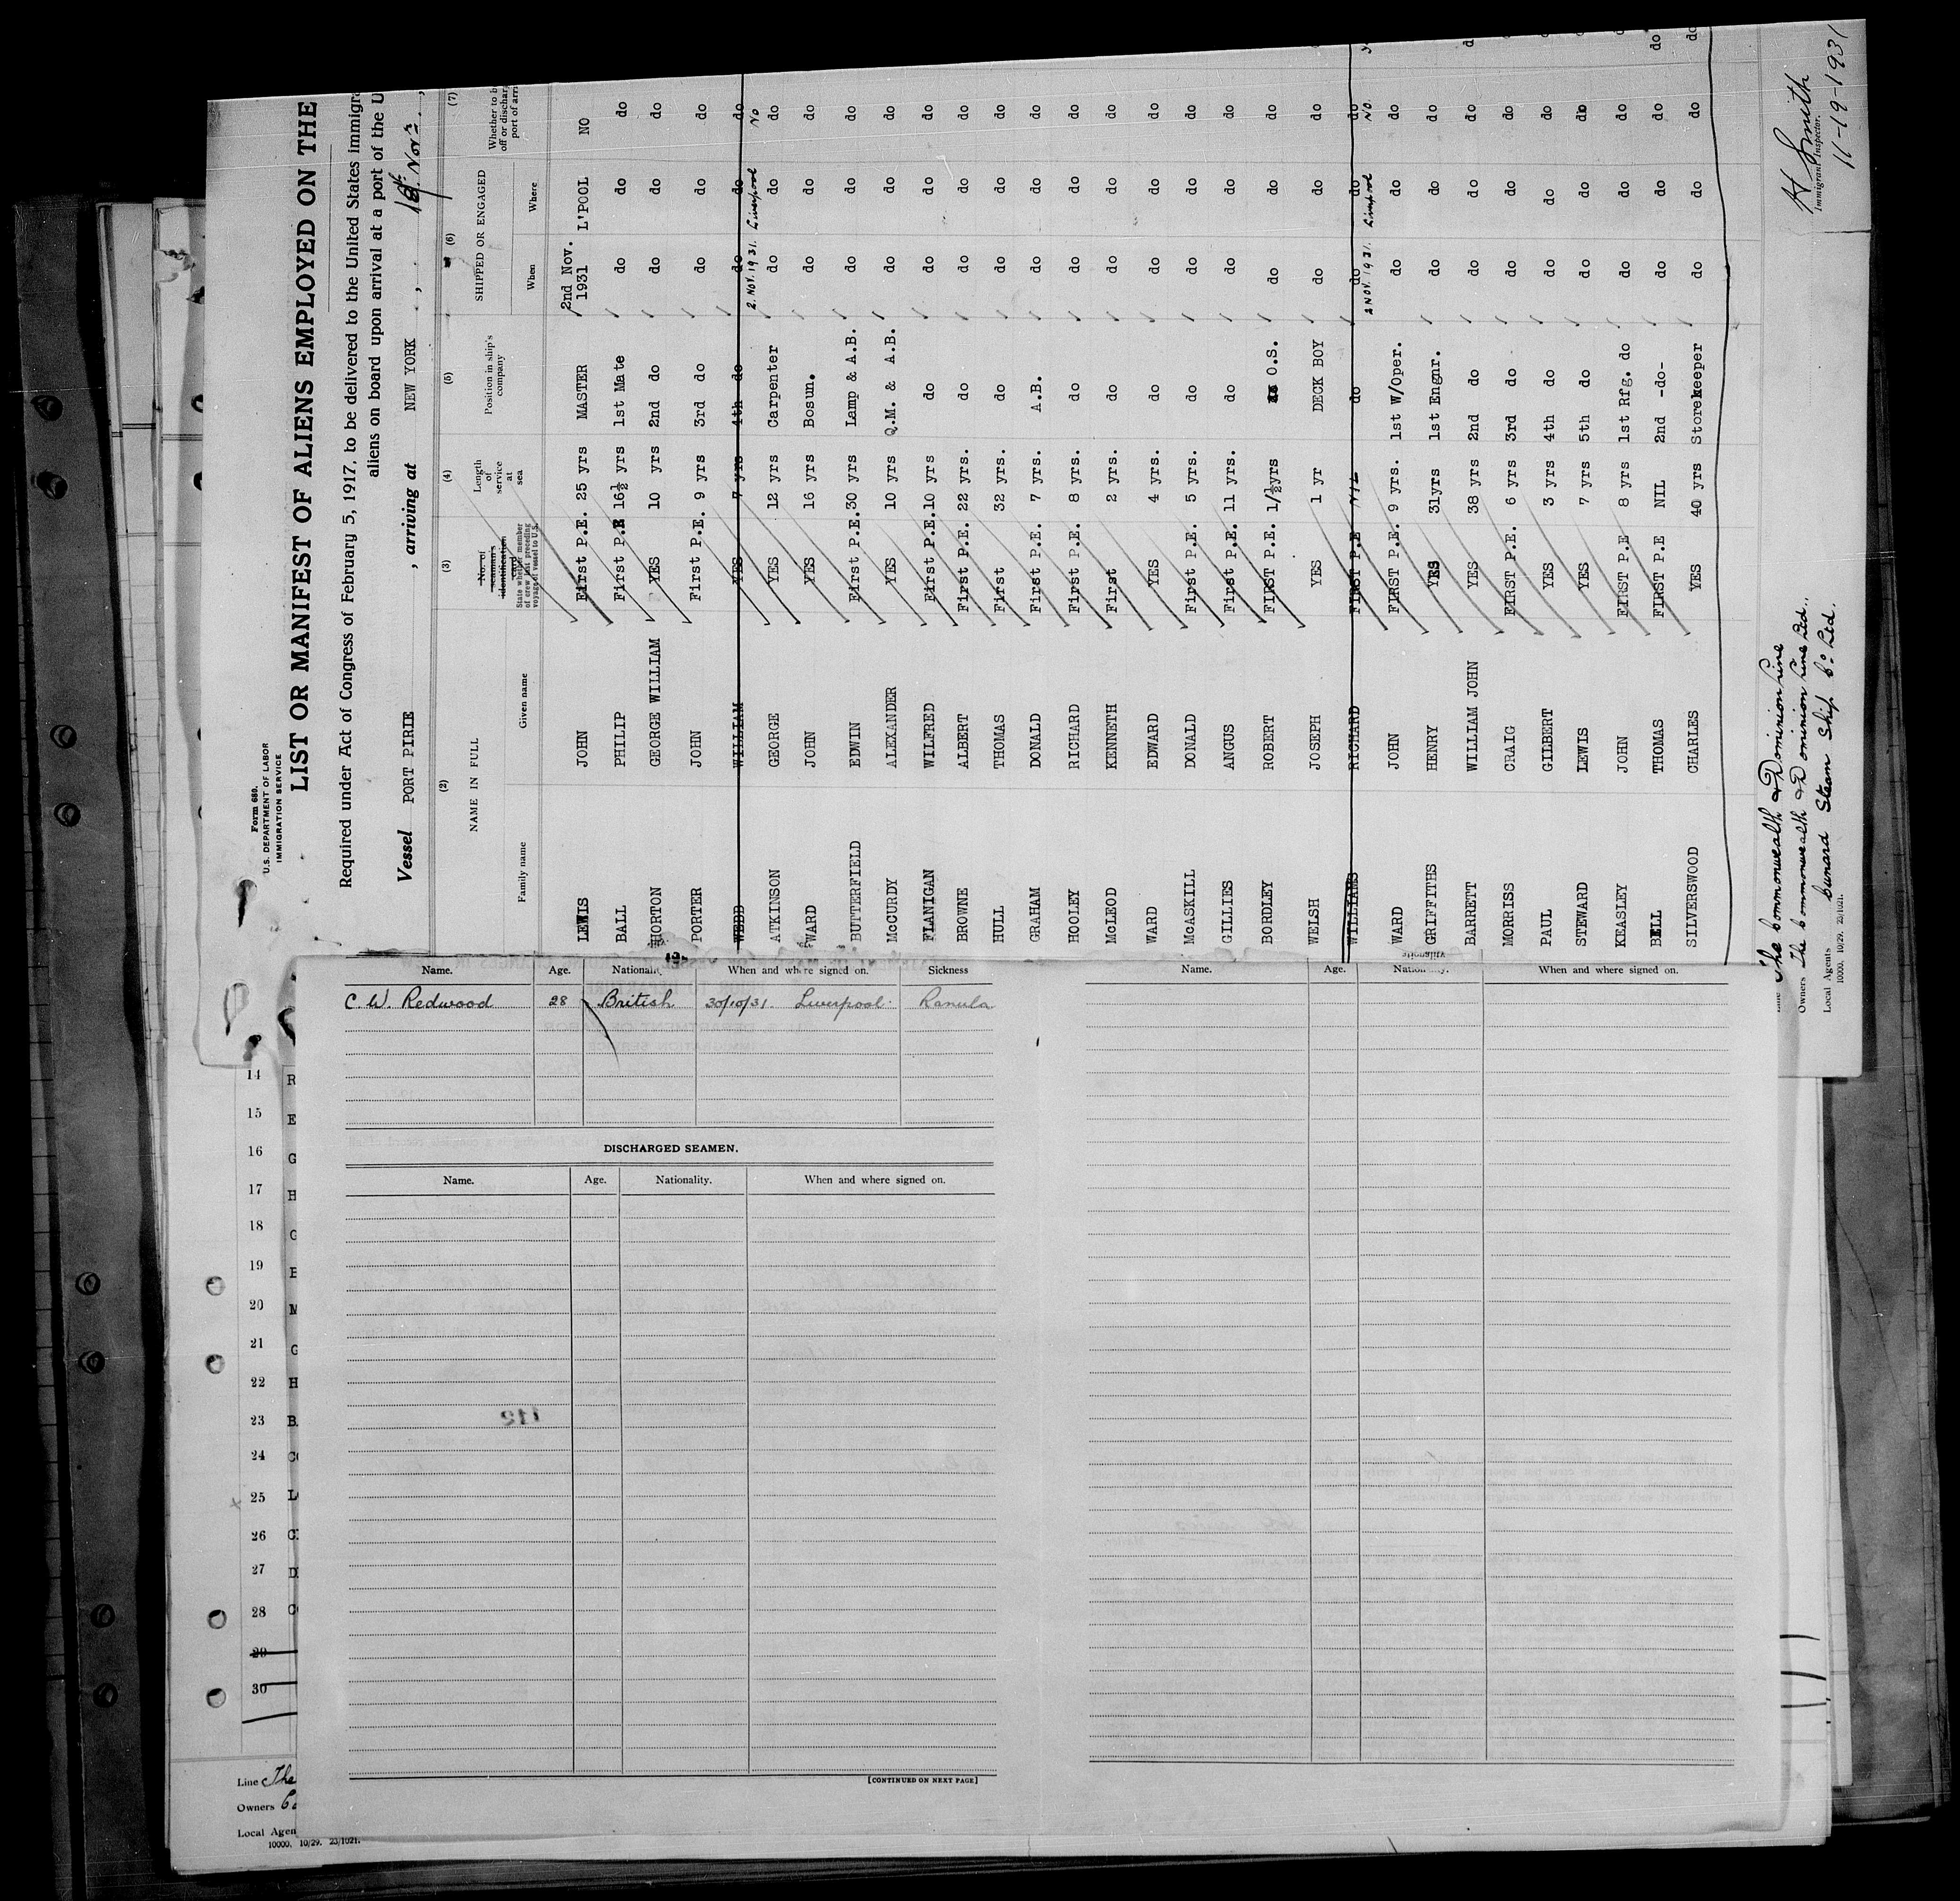 Form 680.
U.S. DEPARTMENT OF LABOR
IMMIGRATION SERVICE
LIST OR MANIFEST OF ALIENS EMPLOYED ON THE
Required under Act of Congress of February 5, 1917, to be delivered to the United States immigra
aliens on board upon arrival at a port of the U
Vessel PORT PIRIE , arriving at NEW YORK , 18th Nov
(2) (3) (4) (5) (6) (7)
NAME IN FULL No. of seaman's identification card State whether member of crew last preceding voyage of vessel to U.S. Length of service at sea Position in ship's company SHIPPED OR ENGAGED Whether to b off or dischar port of arri
Family name Given name When Where
LEWIS JOHN First P.E. 25 yrs MASTER 2nd Nov. 1931 L'POOL NO
BALL PHILIP First P.E 16½ yrs 1st Mate do do do
HORTON GEORGE WILLIAM YES 10 yrs 2nd do do do do
PORTER JOHN First P.E. 9 yrs 3rd do do do do
WEBB WILLIAM YES 7 yrs 4th do do do do
2. NOV. 1931. Liverpool No
ATKINSON GEORGE YES 12 yrs Carpenter do do do
WARD JOHN YES 16 yrs Bosun. do do do
BUTTERFIELD EDWIN First P.E. 30 yrs Lamp & A.B. do do do
McCURDY ALEXANDER YES 10 yrs Q.M. & A.B. do do do
FLANIGAN WILFRED First P.E. 10 yrs do do do do
BROWNE ALBERT First P.E. 22 yrs. do do do do
HULL THOMAS First 32 yrs. do do do do
GRAHAM DONALD First P.E. 7 yrs. A.B. do do do
HOOLEY RICHARD First P.E. 8 yrs. do do do do
McLEOD KENNETH First 2 yrs. do do do do
WARD EDWARD YES 4 yrs. do do do do
McASKILL DONALD First P.E. 5 yrs. do do do do
GILLIES ANGUS First P.E. 11 yrs. do do do do
BORDLEY ROBERT FIRST P.E. 1/½yrs O.S. do do do
WELSH JOSEPH YES 1 yr DECK BOY do do do
WILLIAMS RICHARD FIRST P.E NIL do do do do
2 NOV. 1931. Liverpool NO.
WARD JOHN FIRST P.E. 9 yrs. 1st W/Oper. do do do
GRIFFITHS HENRY YES 31yrs 1st Engnr. do do do
BARRETT WILLIAM JOHN YES 38 yrs 2nd do do do do
MORRISS CRAIG FIRST P.E. 6 yrs 3rd do do do do
PAUL GILBERT YES 3 yrs 4th do do do do
STEWARD LEWIS YES 7 yrs 5th do do do do
KEASLEY JOHN FIRST P.E 8 yrs 1st Rfg. do do do do
BELL THOMAS FIRST P.E NIL 2nd -do- do do do
SILVERSWOOD CHARLES YES 40 yrs Storekeeper do do do
Line The Commonwealth & Dominion Line
Owners The Commonwealth & Dominion Line Ltd.
Local Agents Cunard Steam Ship Co. Ltd.
10000. 10/29. 23/1021.
H Smith
Immigrant Inspector.
11-19-1931
Name. Age. Nationality When and where signed on. Sickness
C. W. Redwood 28 British 30/10/31. Liverpool Ranula
DISCHARGED SEAMEN.
Name. Age. Nationality. When and where signed on.
112
[CONTINUED ON NEXT PAGE]
Name. Age. Nationality. When and where signed on.
14 R
15 E
16 G
17 H
18 G
19 E
20 M
21 G
22 H
23 B
24 CO
25 L
26 G
27 D
28 C
29
30
Line The
Owners Co
Local Agen
10000. 10/29. 23/1021.